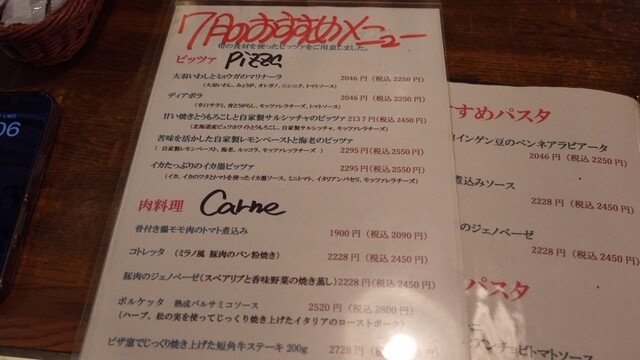 7月のおすすめメニュー
旬の食材を使ったピッツァをご用意しました。
ピッツァ Pizza
大羽いわしとミョウガのマリナーラ 2046円(税込2250円)
(大羽いわし、みょうが、オレガノ、ニンニク、トマトソース)
ディアボラ 2046円(税込2250円)
(辛口サラミ、青とうがらし、モッツァレラチーズ、トマトソース)
甘い焼きとうもろこしと自家製サルシッチャのピッツァ 2137円(税込2450円)
(北海道産ピュアホワイトとうもろこし、自家製サルシッチャ、モッツァレラチーズ)
苦味を活かした自家製レモンペーストと海老のピッツァ
(自家製レモンペースト、海老、ルッコラ、モッツァレラチーズ) 2295円(税込2550円)
イカたっぷりのイカ墨ピッツァ 2295円(税込2550円)
(イカ、イカのワタとトマトを使ったイカ墨ソース、ミニトマト、イタリアンパセリ、モッツァレラチーズ)
肉料理 Carne
骨付き鶏モモ肉のトマト煮込み 1900円(税込2090円)
コトレッタ (ミラノ風 豚肉のパン粉焼き) 2228円(税込2450円)
豚肉のジェノベーゼ(スペアリブと香味野菜の焼き蒸し)2228円(税込2450円)
ポルケッタ 熟成バルサミコソース 2520円(税込2800円)
(ハーブ、松の実を使ってじっくり焼き上げたイタリアのローストポーク)
ピザ窯でじっくり焼き上げた短角牛ステーキ 200g 2728円(税込
すすめパスタ
インゲン豆のペンネアラビアータ
2046円(税込2250円)
煮込みソース
2228円(税込2450円)
のジェノベーゼ
2228円(税込2450円)
パスタ
アンチョビトマトソース
06